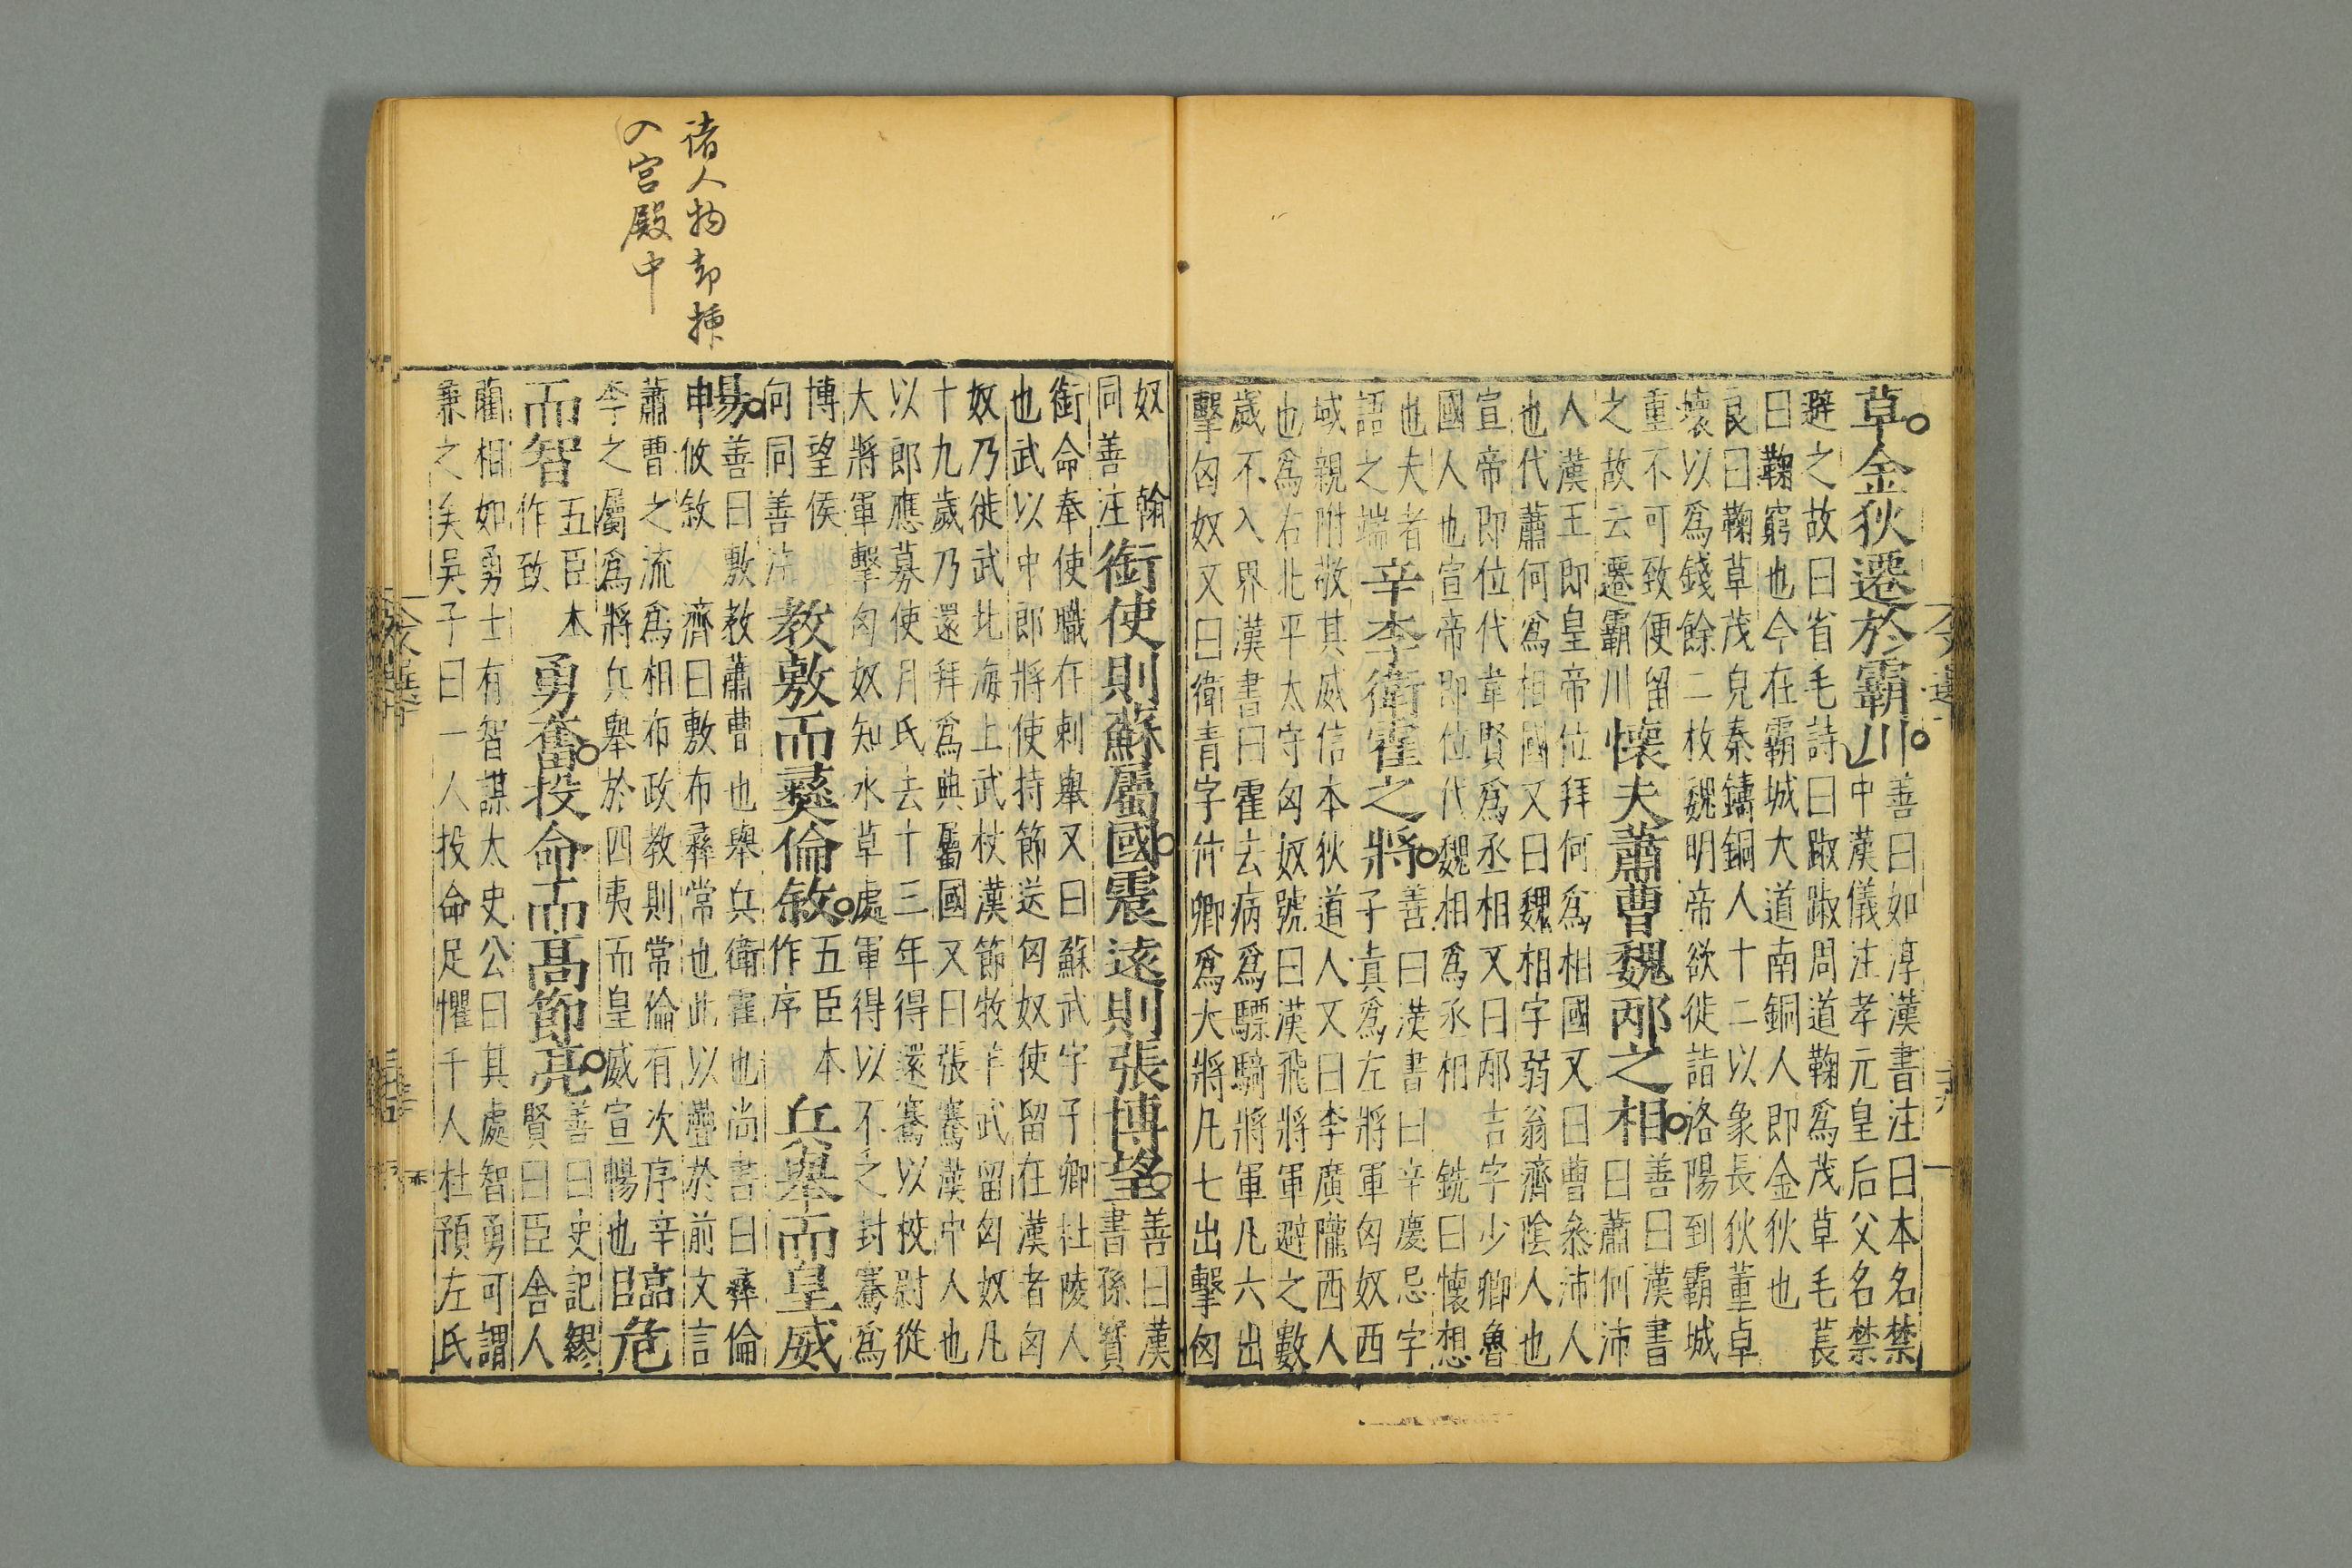 草金狄遷於霸川善曰如淳漢書注曰本名禁
中漢儀注孝元皇后父名禁
避之故曰省毛詩曰踧踧周道鞠爲茂草毛萇
曰鞠窮也今在霸城大道南銅人即金狄也
萇曰鞠草茂皃秦鑄銅人十二以象長狄董卓
壞以爲錢餘二枚魏明帝欲徙詣洛陽到霸城
重不可致便留
之故云遷霸川
懷夫蕭曹魏邴之相善曰漢書
曰蕭何沛
人漢王即皇帝位拜何爲相國又曰曹叅沛人
也代蕭何爲相國又曰魏相字弱翁濟陰人也
宣帝即位代韋賢爲丞相又曰邴吉字少卿魯
國人也宣帝即位代魏相爲丞相 銑曰懷想
也夫者
語之端
辛李衛霍之將善曰漢書曰辛慶忌字
子真爲左將軍匈奴西
域親附敬其威信本狄道人又曰李廣隴西人
也爲右北平太守匈奴號曰漢飛將軍避之數
歲不入界漢書曰霍去病爲驃騎將軍凡六出
擊匈奴又曰衛青字仲卿爲大將凡七出擊匈
諸人物却揷
入宫殿中
奴 翰
同善注
銜使則蘇屬國震遠則張博望善曰漢
書孫寳
銜命奉使職在刺舉又曰蘇武字子卿杜陵人
也武以中郎將使持節送匈奴使留在漢者匈
奴乃徙武北海上武杖漢節牧羊武留匈奴凡
十九歲乃還拜爲典屬國又曰張騫漢中人也
以郎應募使月氏去十三年得還騫以校尉從
大將軍擊匈奴知水草處軍得以不乏封騫爲
博望侯
向同善注
教敷而彛倫敘五臣本
作序
兵舉而皇威
暢善曰敷教蕭曹也舉兵衛霍也尚書曰彝倫
攸敘 濟曰敷布彛常也此以疊於前文言
蕭曹之流爲相布政教則常倫有次序辛
李之屬爲將兵舉於四夷而皇威宣暢也
臨危
而智五臣本
作致
勇奮投命而高節亮善曰史記繆
賢曰臣舍人
藺相如勇士有智謀太史公曰其處智勇可謂
兼之矣吳子曰一人投命足懼千人杜預左氏